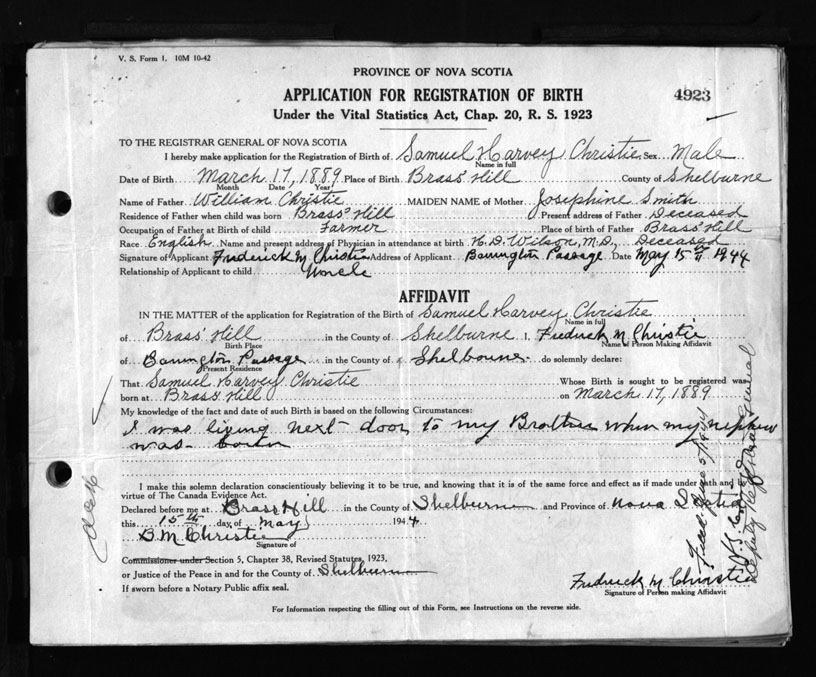 V. S. Form 1. 10M 10-42
PROVINCE OF NOVA SCOTIA
APPLICATION FOR REGISTRATION OF BIRTH
4923
Under the Vital Statistics Act, Chap. 20, R. S. 1923
TO THE REGISTRAR GENERAL OF NOVA SCOTIA
I hereby make application for the Registration of Birth of Samuel Harvey Christie Sex Male
Name in full
Date of Birth March 17, 1889 Place of Birth Brass' Hill County of Shelburne
Month Date, Year
Name of Father William Christie MAIDEN NAME of Mother Josephine Smith
Residence of Father when child was born Brass' Hill Present address of Father Deceased
Occupation of Father at Birth of child Farmer Place of birth of Father Brass' Hill
Race English Name and present address of Physician in attendance at birth H. D. Wilson, M.D., Deceased
Signature of Applicant Fredrick M Christie Address of Applicant Barrington Passage Date May 15th 1944
Relationship of Applicant to child Uncle
AFFIDAVIT
IN THE MATTER of the application for Registration of the Birth of Samuel Harvey Christie
Name in full
of Brass' Hill in the County of Shelburne I, Fredrick M Christie
Birth Place Name of Person Making Affidavit
of Barrington Passage in the County of Shelbourne do solemnly declare:
Present Residence
That Samuel Harvey Christie Whose Birth is sought to be registered was
born at Brass' Hill on March 17, 1889
My knowledge of the fact and date of such Birth is based on the following Circumstances:
I was living next door to my Brother when my nephew
was born
I make this solemn declaration conscientiously believing it to be true, and knowing that it is of the same force and effect as if made under oath and by
virtue of The Canada Evidence Act.
Declared before me at Brass Hill in the County of Shelburne and Province of Nova Scotia
this 15th day of May 1944
B. M. Christie
Signature of
Commissioner under Section 5, Chapter 38, Revised Statutes, 1923,
or Justice of the Peace in and for the County of Shelburne
If sworn before a Notary Public affix seal.
Fredrick M Christie
Signature of Person making Affidavit
For Information respecting the filling out of this Form, see Instructions on the reverse side.
Filed June 5/1944
Deputy Registrar General